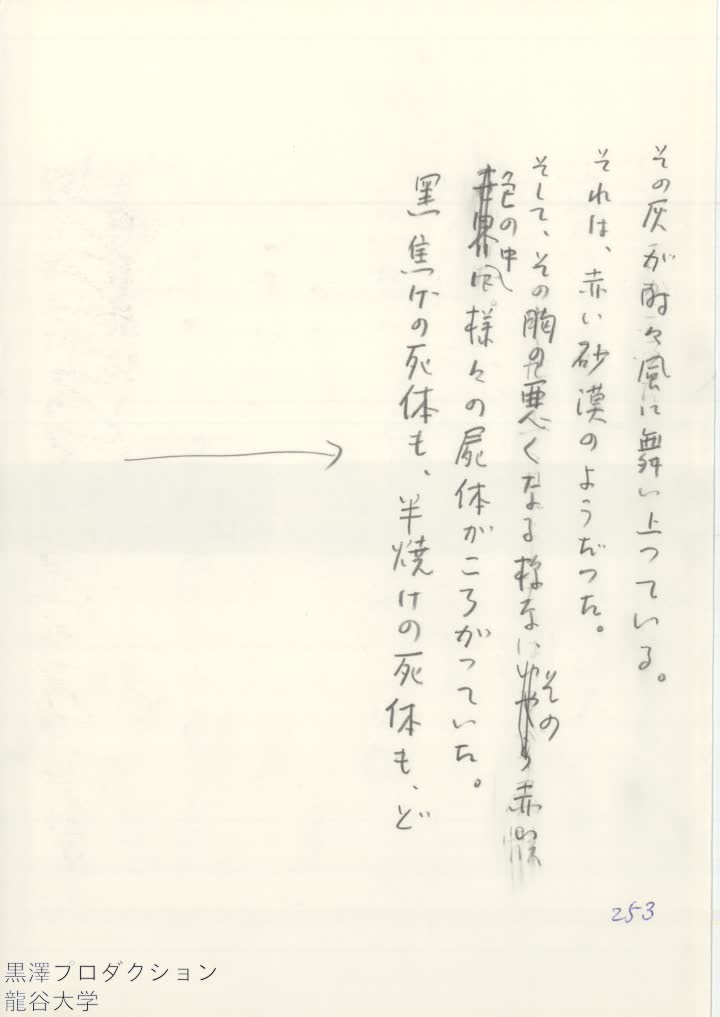 その灰が時々風に舞い上つている。
それは、赤い砂漠のようだつた。
そして、その胸の悪くなる様な その 赤
色の中に 様々の屍体がころがつていた。
黒焦げの死体も、半焼けの死体も、ど
253
黒澤プロダクション
龍谷大学